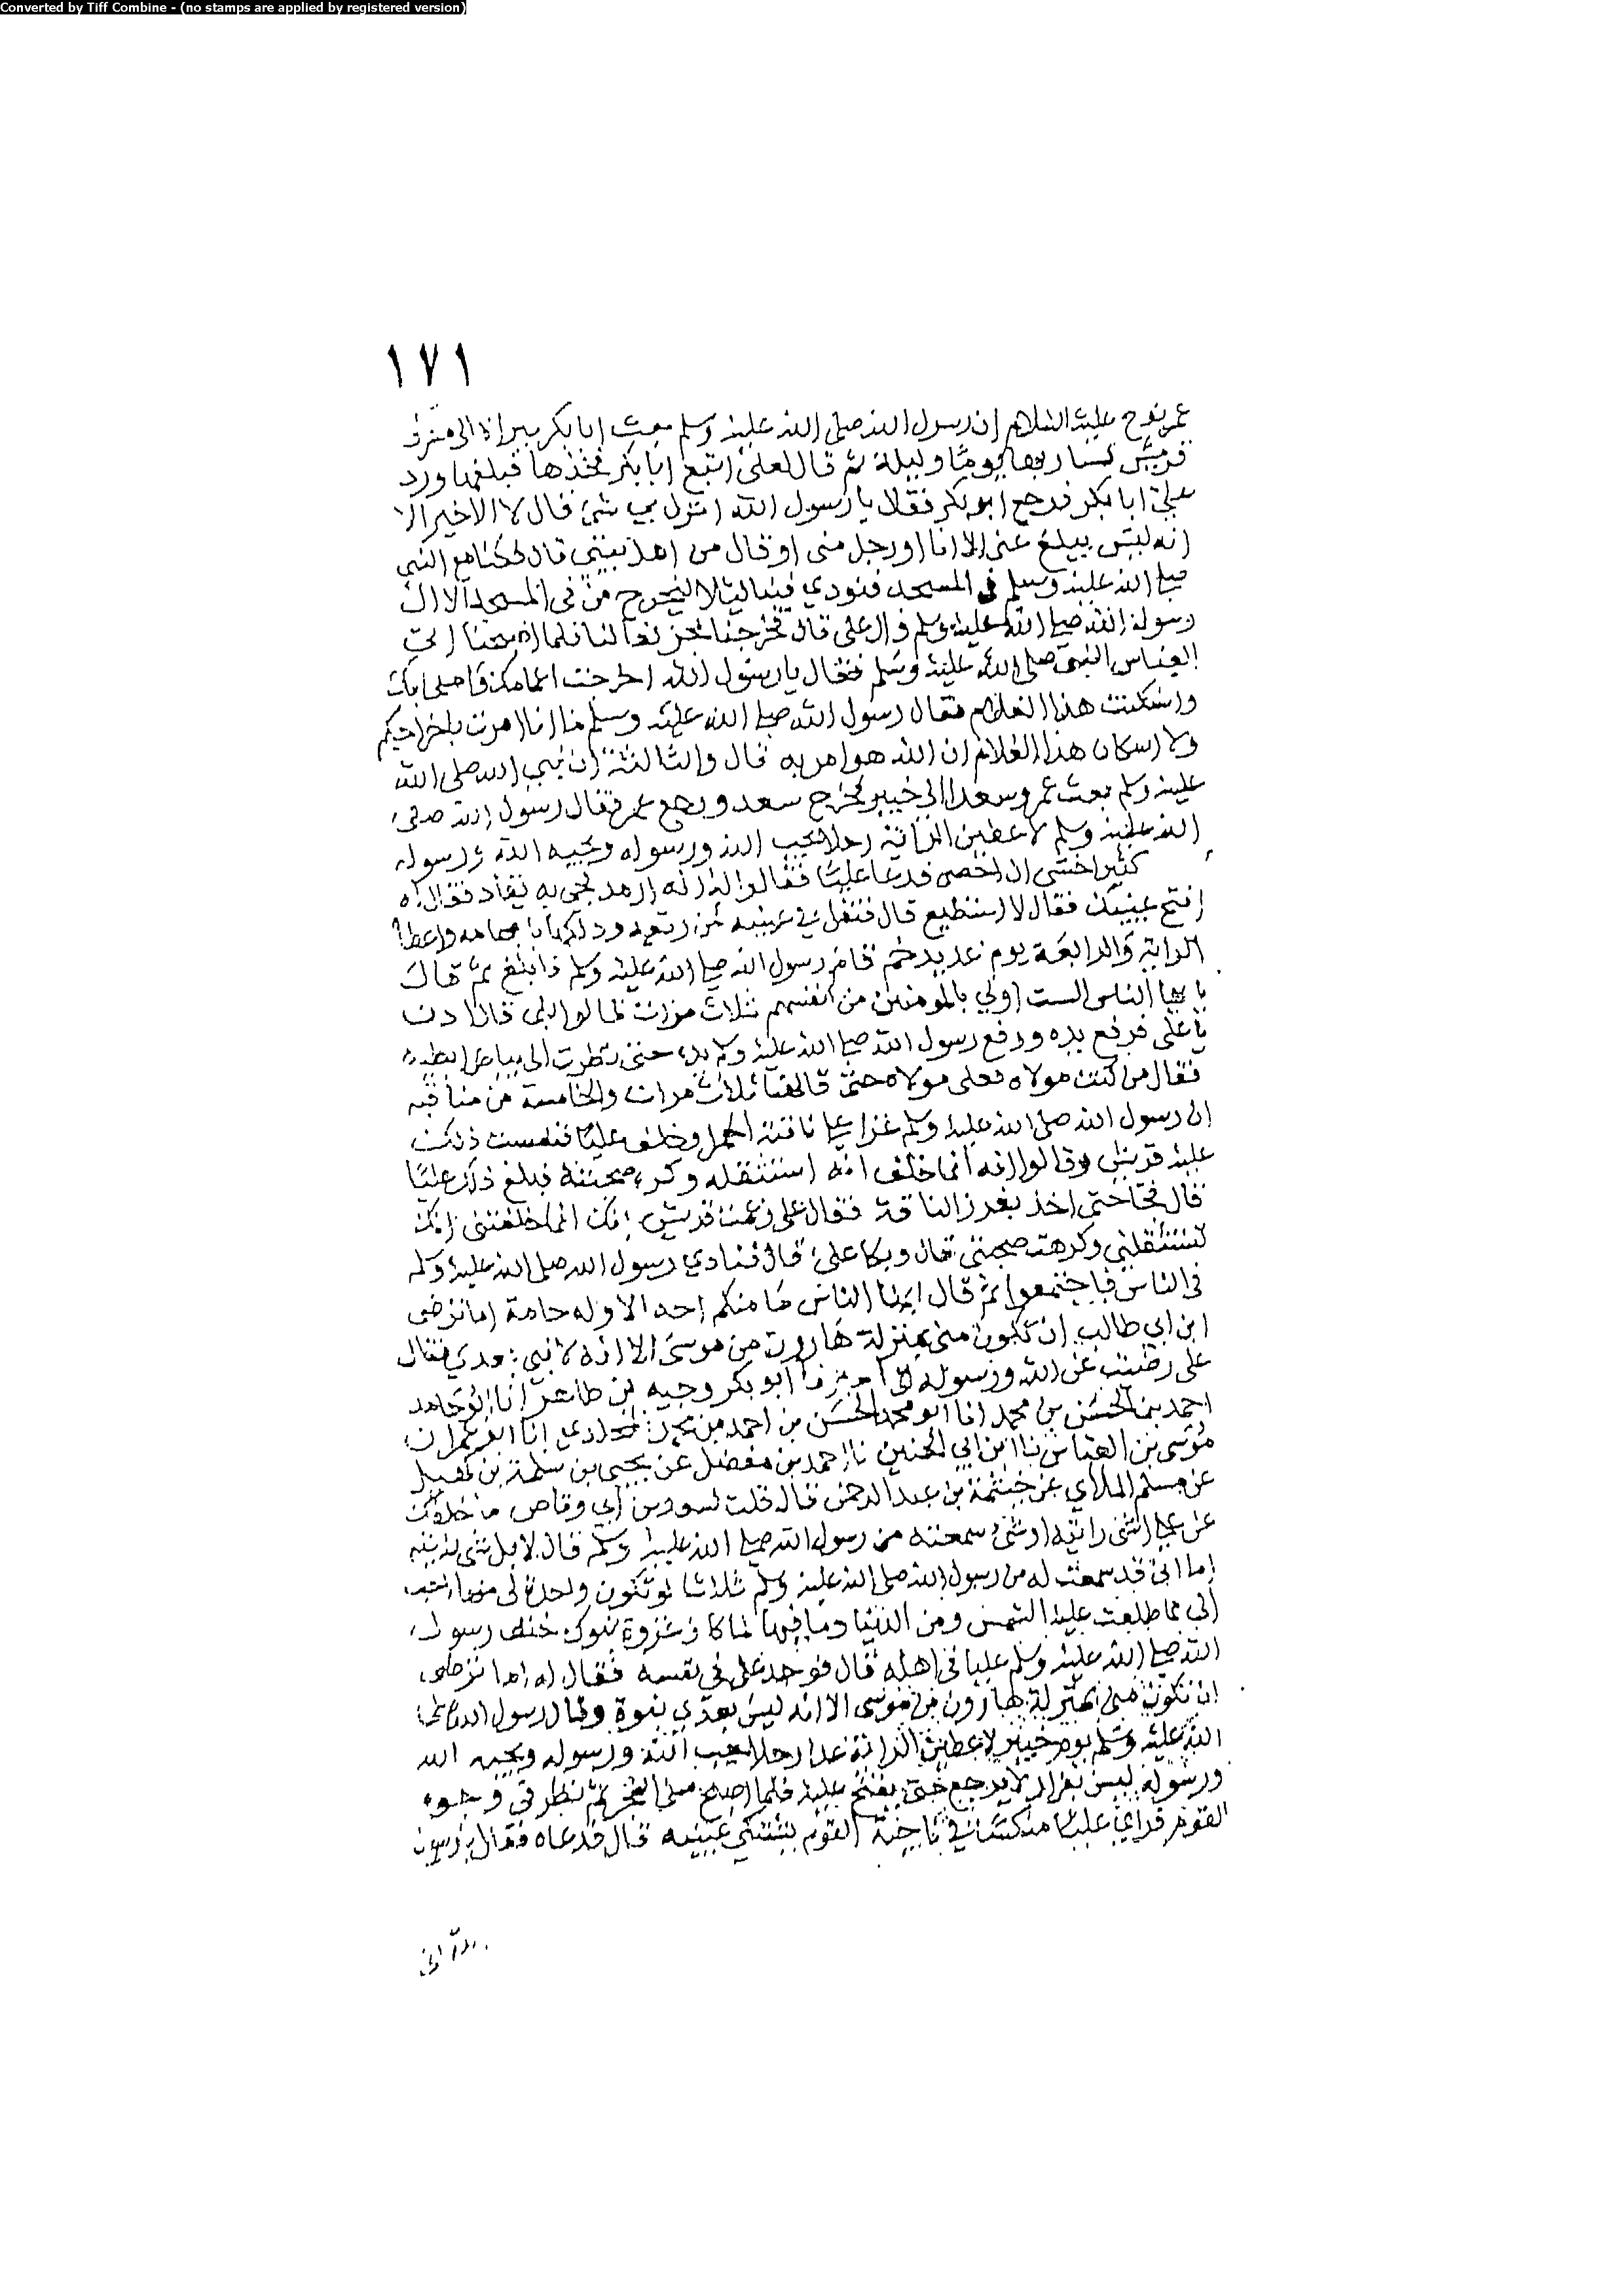 Converted by Tiff Combine - (no stamps are applied by registered version)
١٧١
عمر نوح عليه السلام ان رسول الله صلى الله عليه وسلم بعث ابا بكر ببراة الى مشركي
قريش فسار بها يوما وليلة ثم قال لعلي اتبع ابا بكر فخذها فبلغها ورد
علي ابا بكر فرجع ابو بكر فقال يا رسول الله انزل في شي قال لا الا خير الا
انه ليس يبلغ عني الا انا او رجل مني او قال من اهل بيتي قال وكنا مع النبي
صلى الله عليه وسلم في المسجد فنودي فينا ليلا ليخرج من في المسجد الا ال
رسول الله صلى الله عليه وسلم وال علي قال فخرجنا نجر نعالنا فلما اصبحنا اتى
العباس النبي صلى الله عليه وسلم فقال يا رسول الله اخرجت اعمامك واصحابك
واسكنت هذا الغلام فقال رسول الله صلى الله عليه وسلم ما انا امرت باخراجكم
ولا اسكان هذا الغلام ان الله هو امر به قال والثالثة ان نبي الله صلى الله
عليه وسلم بعث عمر وسعدا الى خيبر فخرج سعد ورجع عمر فقال رسول الله صلى
الله عليه وسلم لاعطين الراية رجلا يحب الله ورسوله ويحبه الله ورسوله
كثير اخشى ان احصي فدعا عليا فقالوا انه ارمد فجي به يقاد فقال له
افتح عينيك فقال لا استطيع قال فتفل في عينيه من ريقه ودلكها بابهامه واعطاه
الراية والرابعة يوم غدير خم قام رسول الله صلى الله عليه وسلم فابلغ ثم قال
يا ايها الناس الست اولى بالمومنين من انفسهم ثلاث مرات قالوا بلى قال ادن
يا علي فرفع يده ورفع رسول الله صلى الله عليه وسلم يده حتى نظرت الى بياض ابطيه
فقال من كنت مولاه فعلي مولاه حتى قالها ثلاث مرات والخامسة من مناقبه
ان رسول الله صلى الله عليه وسلم غزا على ناقته الحمرا وخلف عليا فنفست ذلك
عليه قريش وقالوا انه انما خلفه انه استثقله وكره صحبته فبلغ ذلك عليا
قال فجا حتى اخذ بغرز الناقة فقال علي زعمت قريش انك انما خلفتني انك
تستثقلني وكرهت صحبتي قال وبكا علي قال فنادى رسول الله صلى الله عليه وسلم
في الناس فاجتمعوا ثم قال ايها الناس ما منكم احد الا وله حامة اما ترضى
ابن ابي طالب ان تكون مني بمنزلة هارون من موسى الا انه لا نبي بعدي فقال
علي رضيت عن الله ورسوله اخبرنا ابو بكر وجيه بن طاهر انا ابو حامد
احمد بن الحسن بن محمد انا ابو محمد الحسن بن احمد بن محمد المخلدي انا ابو عمران
موسى بن العباس نا ابن ابي الحنين نا احمد بن مفضل عن يحيى بن سلمة بن كهيل
عن مسلم الملاي عن خيثمة بن عبد الرحمن قال قلت لسعد بن ابي وقاص ما خلفك
عن علي اشي رايته او شي سمعته من رسول الله صلى الله عليه وسلم قال لا بل شي رايته
اما اني قد سمعت له من رسول الله صلى الله عليه وسلم ثلاثا لو تكون واحدة لي منها احب
الي مما طلعت عليه الشمس ومن الدنيا وما فيها لما كان غزوة تبوك خلف رسول
الله صلى الله عليه وسلم عليا في اهله قال فوجد علي في نفسه فقال له اما ترضى
ان تكون مني بمنزلة هارون من موسى الا انه ليس بعدي نبوة وقال رسول الله صلى
الله عليه وسلم يوم خيبر لاعطين الراية غدا رجلا يحب الله ورسوله ويحبه الله
ورسوله ليس بفرار لا يرجع حتى يفتح عليه فلما اصبح صلى الفجر ثم نظر في وجوه
القوم فراى عليا منكسا في ناحية القوم يشتكي عينيه قال فدعاه فقال يا رسول